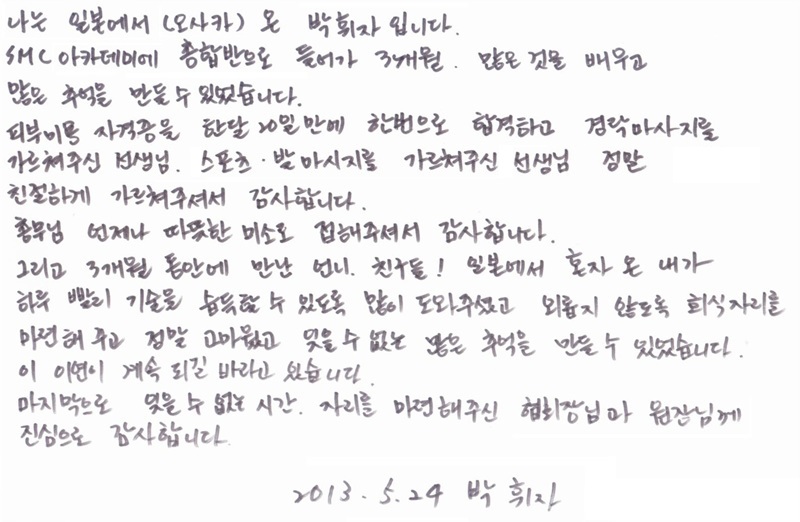 나는 일본에서 (오사카) 온 박휘자 입니다.
SMC 아카데미에 종합반으로 들어가 3개월. 많은 것을 배우고
많은 추억을 만들 수 있었습니다.
피부미용 자격증을 한달 20일만에 한번으로 합격하고 경락마사지를
가르쳐주신 선생님. 스포츠·발마사지를 가르쳐주신 선생님 정말
친절하게 가르쳐주셔서 감사합니다.
총무님 언제나 따뜻한 미소로 접해주셔서 감사합니다.
그리고 3개월 동안에 만난 언니. 친구들! 일본에서 혼자 온 내가
하루 빨리 기술을 습득할 수 있도록 많이 도와주셨고 외롭지 않도록 회식자리를
마련해 주고 정말 고마웠고 잊을 수 없는 많은 추억을 만들 수 있었습니다.
이 인연이 계속 되길 바라고 있습니다.
마지막으로 잊을 수 없는 시간. 자리를 마련해주신 협회장님과 원장님께
진심으로 감사합니다.
2013. 5. 24 박 휘자